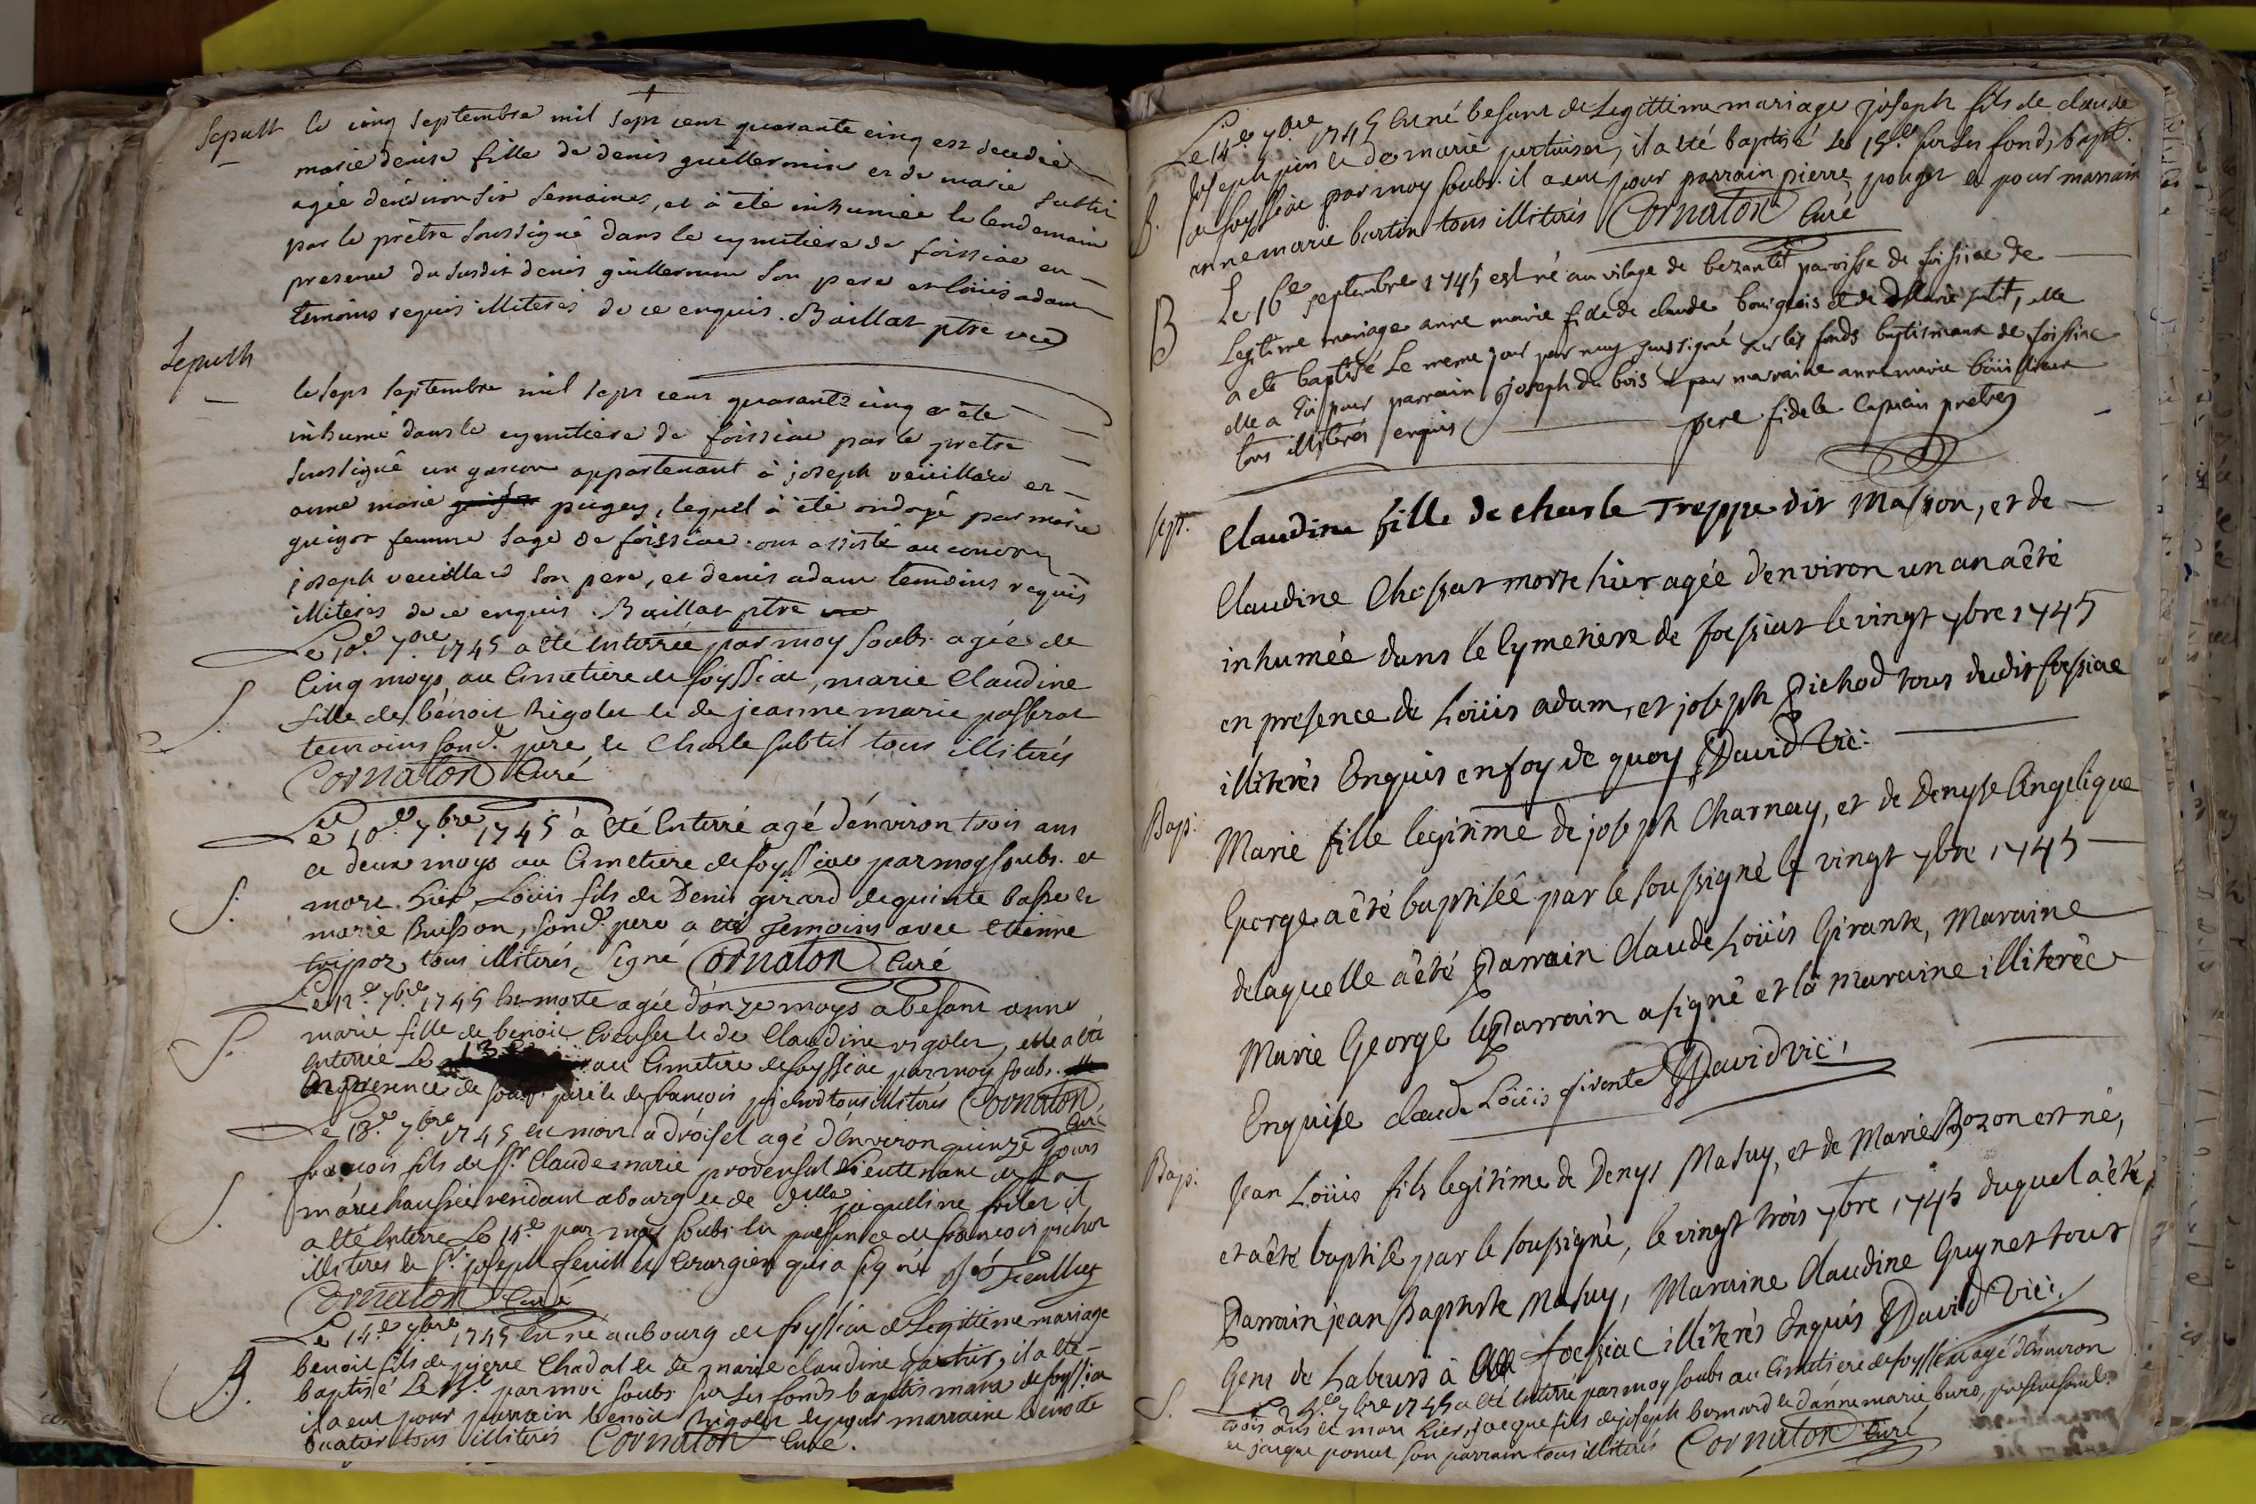 Sepult le cinq septembre mil sept cent quarante cinq est decedée
marie denise fille de denis guillermin et de marie subtil
agée denviron six semaines, et à été inhumée le lendemain
par le prêtre soussigné dans le cymitiere de foissiac en
presence du susdit denis guillermin son pere et loüis adam
temoins requis illiterés de ce enquis. Baillat ptre vic
Sepult
le sept septembre mil sept cent quarante cinq a été
inhumé dans le cymitiere de foissiac par le pretre
soussigné un garcon appartenant à joseph veuillard et
anne marie pugey, lequel à été ondoyé par marie
guigot femme sage de foissiac. ont assisté au convoy
joseph veuillard son pere, et denis adam temoins requis
illiterés de ce enquis. Baillat ptre vic
Le 10.e 7.bre 1745 a été Enterrée par moy soubs. agée de
Cinq moys au Cimetiere de foyssiac, marie Claudine
S. fille de benoit Rigolet et de jeanne marie passerat
temoins sond. pere et Charle subtil tous illiterés
Cornaton Curé
Le 10.e 7.bre 1745 à été Enterré agé d'énviron trois ans
et deux moys au Cimetiere de foyssiac par moy soubs. et
S. mort hier, Loüis fils de Denis girard de quinte basse et
marie Buisson, sond. pere a été temoins avec etienne
tripoz tous illiterés, Signé Cornaton Curé
Le 12.e 7.bre 1745 Est morte agée d'onze moys a besant anne
S. marie fille de benoit Creuset et de Claudine rigolet, elle a été
Enterrée Le 13 au Cimetiere de foyssiac par moy soubs.
En presence de sond. pere et de françois pichod tous illiterés Cornaton
Curé
Le 13.e 7.bre 1745 est mort a dróiset agé d'énviron quinze jours
françois fils de Sr. Claude marie provensal Lieutenant de La
S. maréchaussée residant a bourg et de d.lle jaqueline il
a été Enterré Le 14.e par moy soubs. En presence de françois pichot
illiterés et Sr. joseph feuillet Cirurgien qui a signé Jph feuillet
Cornaton Curé
Le 14.e 7.bre 1745 Est né au bourg de foyssiac de Legittime mariage
B. benoit fils de pierre Chadal et de marie claudine gautier, il a été
baptisé Le 15.e par moi soubs. sur Les fonds baptismaux de foyssiac
il a eut pour parrain benoit Rigolet et pour marraine benoite
buatier tous illiterés Cornaton Curé.
Le 14.e 7.bre 1745 Est né besant de Legittime mariage joseph fils de claude
joseph juin et de marie pertuiset, il a été baptisé Le 15.e sur Les fonds bapt.
B. a foyssiac par moy soubs. il a eut pour parrain pierre pouget et pour marraine
anne marie burtin tous illiterés Cornaton Curé
B Le 16e septembre 1745 est né au vilage de bezantet paroisse de foissiac de
Legitime mariage anne marie fille de claude bourgeois et de Marie subtil, elle
a eté baptisé Le meme jour par moy soussigné sur les fonds baptismaux de foissiac
elle a eü pour parrain joseph du bois et pour marraine anne marie
tous illiterés enquis pere fidele Capucin pretre
sept. Claudine fille de charle Treppe dit Masson, et de
Claudine Chossat morte hier agée d'environ un an a êté
inhumée dans le Cymetiere de foissiat le vingt 7bre 1745
en presence de Loüis adam, et joseph Pichod tous dudit foissiac
illiterés Enquis en foy de quoy David Vic:
Bap: Marie fille legitime de joseph Charnay, et de Denyse Angelique
George a êté baptisée par le soussigné le vingt 7bre 1745
de laquelle a êté Parrain Claude Loüis Girante, Maraine
Marie George le Parrain a signé et la maraine illiterée
Enquise claude Loüis girante David vic:
Bap: Jean Loüis fils legitime de Denys Masuy, et de Marie Bozon est né,
et a êté baptisé par le soussigné, le vingt trois 7bre 1745 duquel a êté
Parrain jean Baptiste Masuy, Maraine Claudine Guynet tout
Gens de Labeurs à foissiac illiterés Enquis David Vic:
S. 7bre 1745 a été Enterré par moy soubs au Cimetiere de foyssiac agé d'énviron
trois ans et mort hier, jacque fils de joseph bernard et d'anne marie buro, presens sond.
et jacque poncet son parrain tous illiterés Cornaton Curé